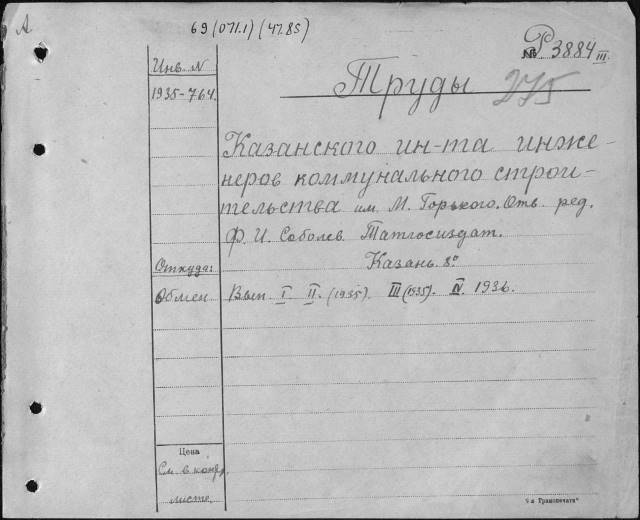 А
69 (071.1) (47.85)
№ Р 3884 III
Инв. №
1935-764.
Труды
275
Казанского ин-та инже-
неров коммунального строи-
тельства им. М. Горького. Отв. ред.
Ф. И. Соболев. Татгосиздат.
Казань. 8°
Откуда:
Обмен
Вып. I. II. (1935). III (1935). IV. 1936.
Цена
См. в контр.
листе.
9-я Транспечать